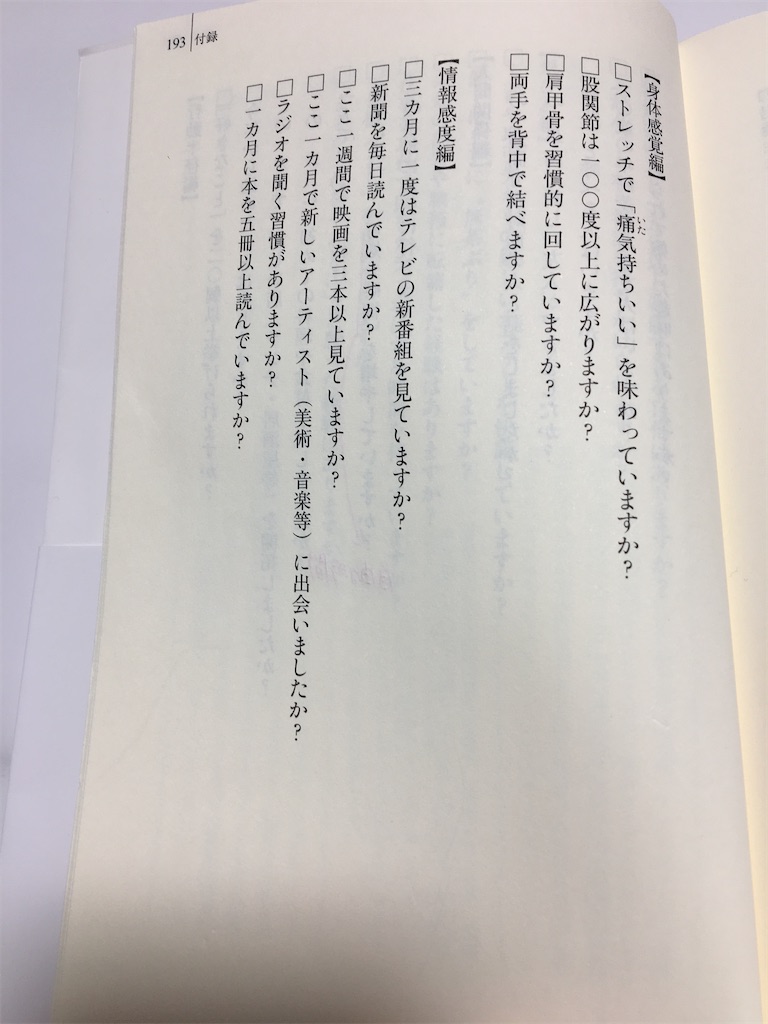 193 付録
【身体感覚編】
□ストレッチで「痛気持ちいい」を味わっていますか?
いた
□股関節は一〇〇度以上に広がりますか?
□肩甲骨を習慣的に回していますか?
□両手を背中で結べますか?
【情報感度編】
□三カ月に一度はテレビの新番組を見ていますか?
□新聞を毎日読んでいますか?
□ここ一週間で映画を三本以上見ていますか?
□ここ一カ月で新しいアーティスト(美術・音楽等)に出会いましたか?
□ラジオを聞く習慣がありますか?
□一カ月に本を五冊以上読んでいますか?